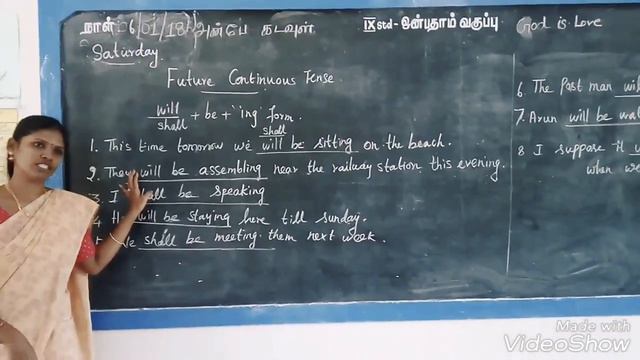 நாள் 6/01/18 அன்பே கடவுள் IX std - ஒன்பதாம் வகுப்பு God is Love
Saturday
Future Continuous Tense
will
shall + be + 'ing' form.
shall
1. This time tomorrow we will be sitting on the beach.
2. They will be assembling near the railway station this evening.
3. I shall be speaking
will be staying here till sunday.
shall be meeting them next week.
6. The Post man
7. Arun will be
8 I suppose
when
Made with
VideoShow